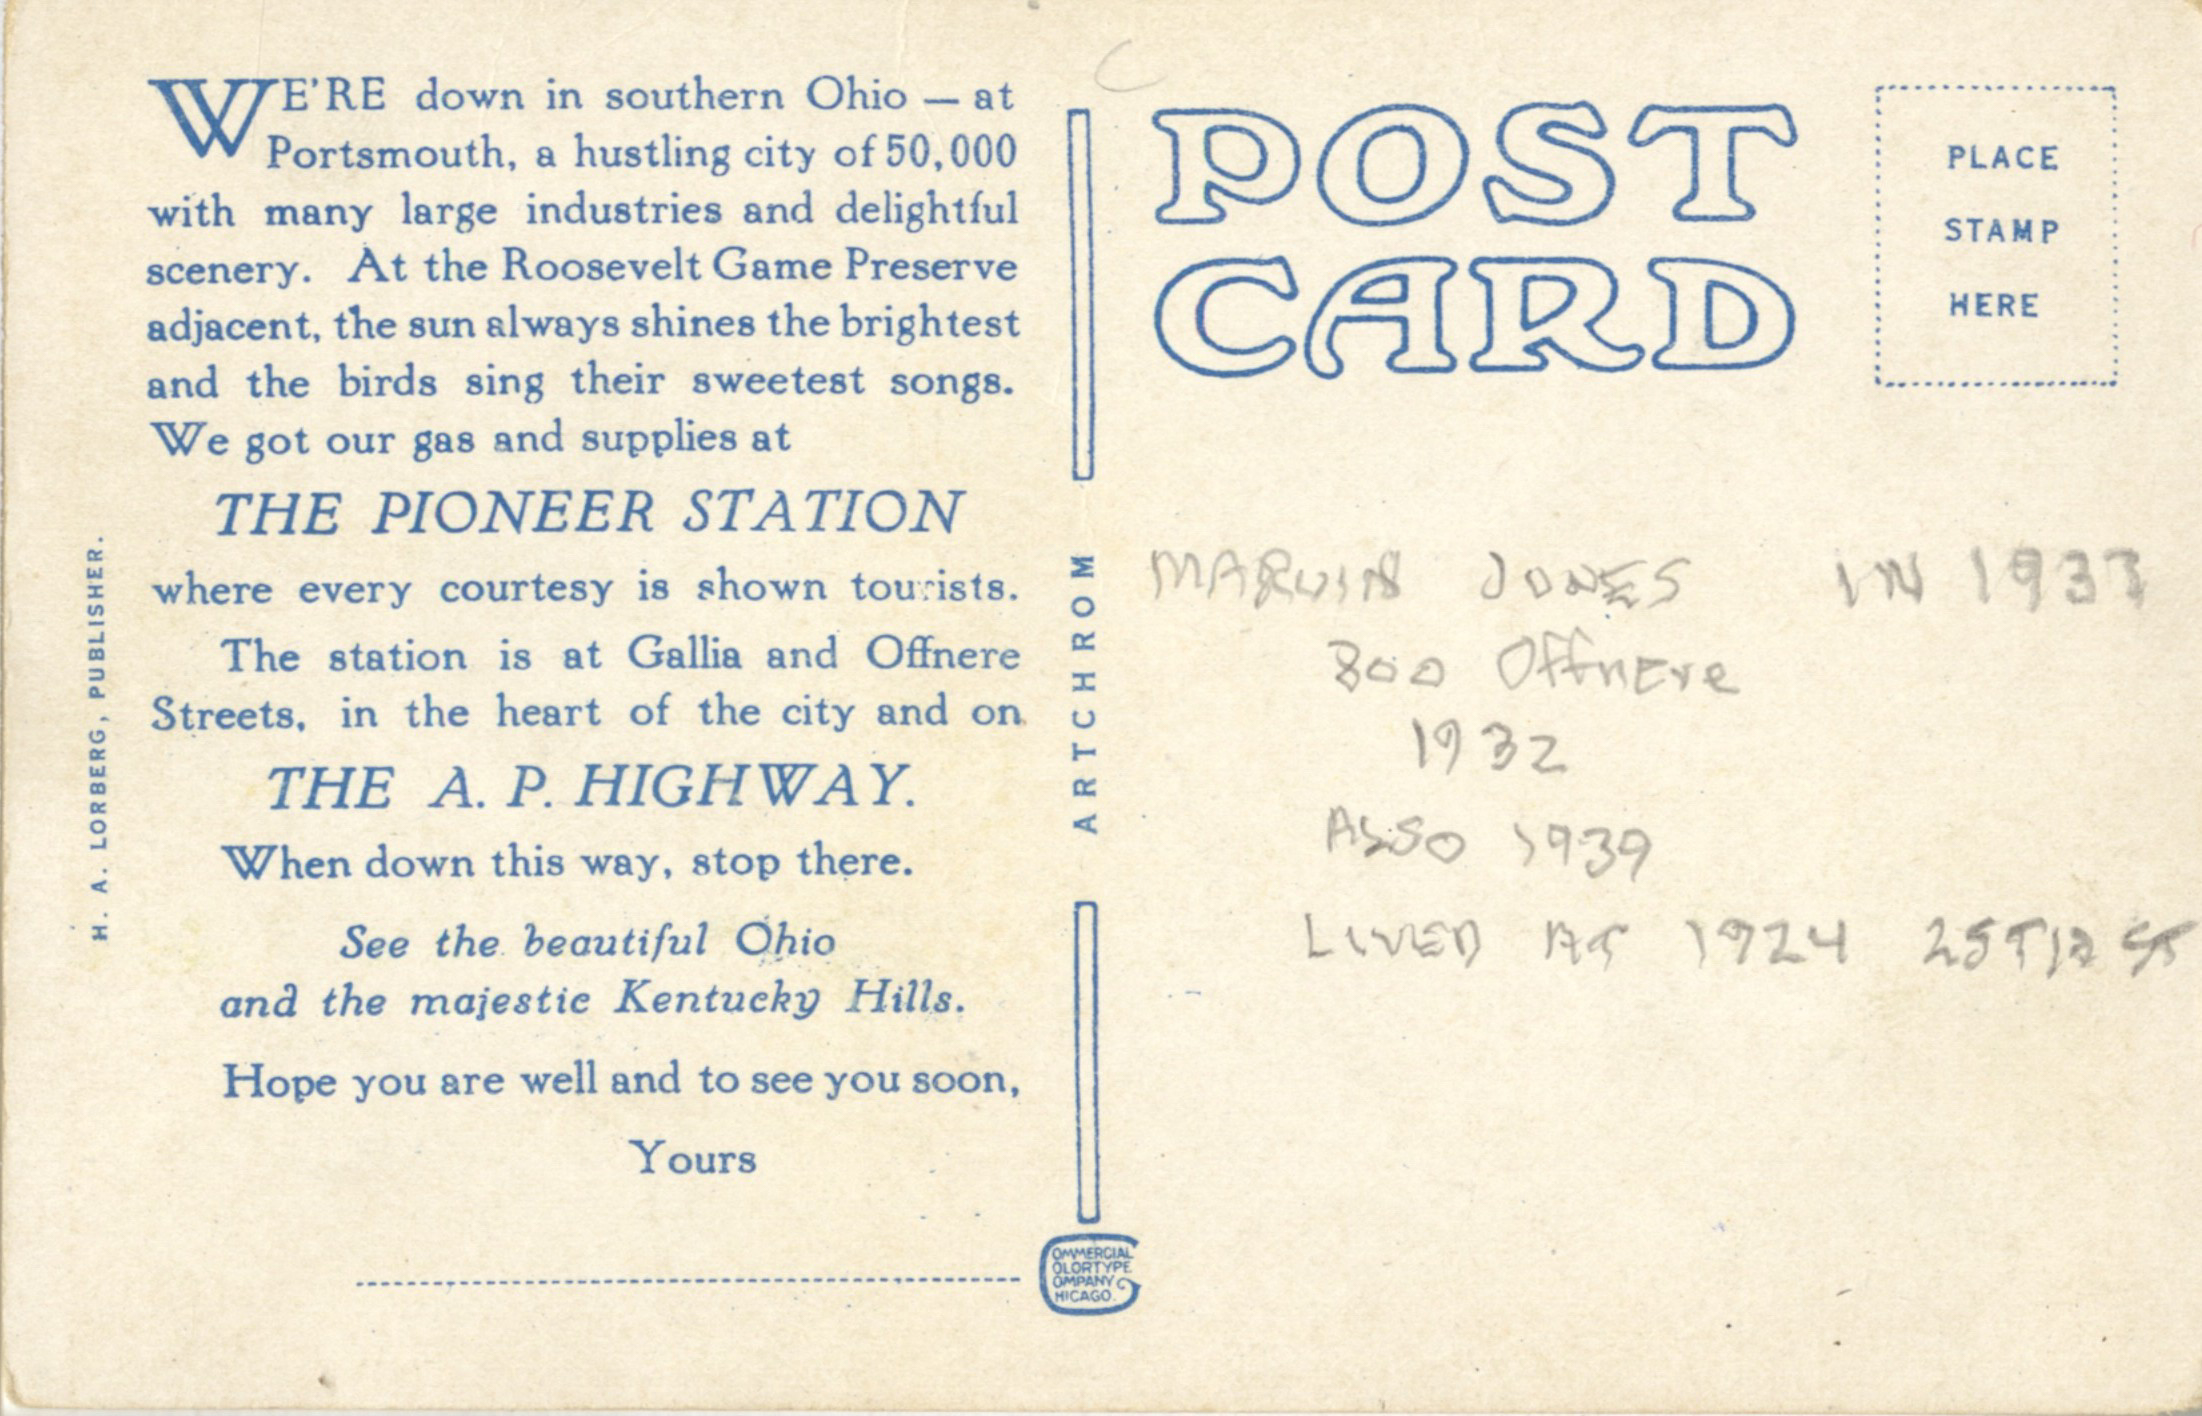 WE'RE down in southern Ohio — at
Portsmouth, a hustling city of 50,000
with many large industries and delightful
scenery. At the Roosevelt Game Preserve
adjacent, the sun always shines the brightest
and the birds sing their sweetest songs.
We got our gas and supplies at
THE PIONEER STATION
where every courtesy is shown tourists.
The station is at Gallia and Offnere
Streets, in the heart of the city and on
THE A. P. HIGHWAY.
When down this way, stop there.
See the beautiful Ohio
and the majestic Kentucky Hills.
Hope you are well and to see you soon,
Yours
H. A. LORBERG, PUBLISHER.
ARTCHROM
COMMERCIAL
COLORTYPE
COMPANY
CHICAGO.
POST
CARD
PLACE
STAMP
HERE
MARVIN JONES IN 1933
800 Offnere
1932
ALSO 1939
LIVED AT 1924